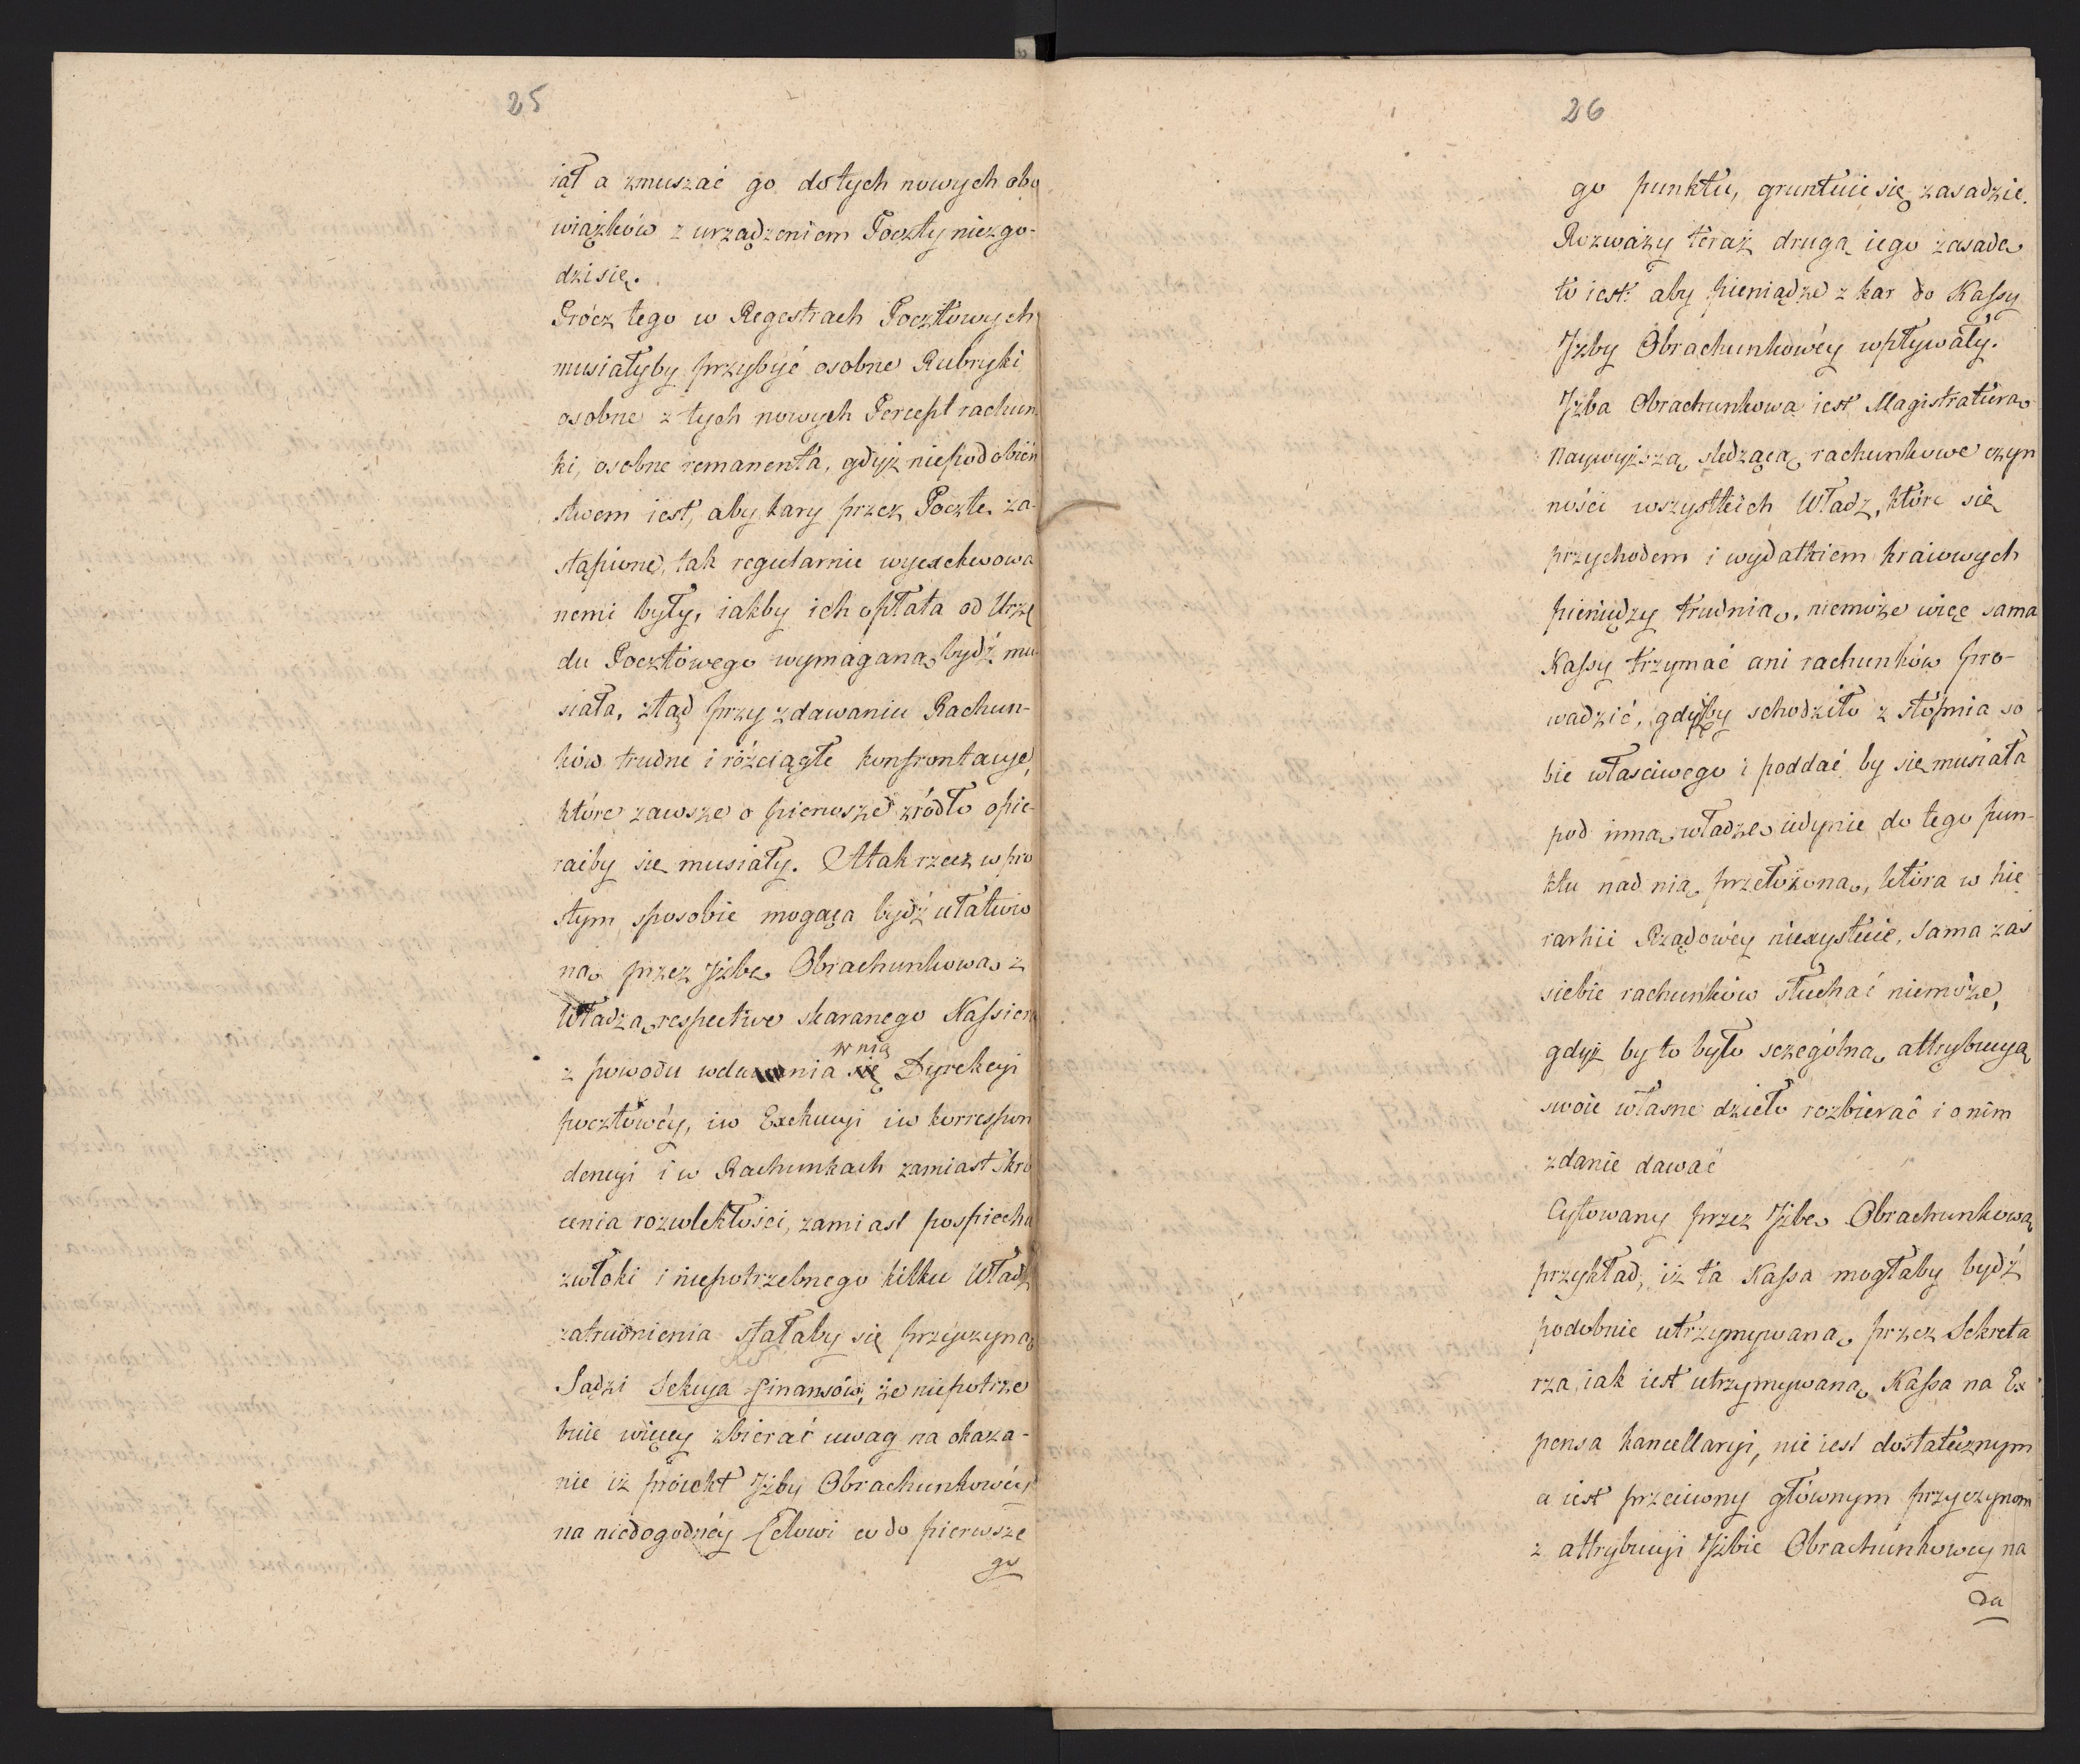 25
iał a zmuszać go do tych nowych obo
wiązków z urządzeniem Poczty niezgo-
dzi się.
Prócz tego w Regestrach Pocztowych
musiałyby przybyć osobne Rubryki
osobne z tych nowych Percept rachun
ki, osobne remanenta, gdyż niepodobień
stwem iest, aby kary przez Pocztę za-
stąpione, tak regularnie wyexekwowa
nemi były, iakby ich opłata od Urzę
du Pocztowego wymaganą bydź mu
siała, ztąd przy zdawaniu Rachun-
ków trudne i rózciągłe konfrontacye,
które zawsze o pierwsze zródło opie-
raćby się musiały. A tak rzecz w pro
stym sposobie mogąca bydź ułatwio
ną przez Jzbę Obrachunkową z
Władzą respective skaranego Kassiera
w nią
z powodu wdawania się Dyrekcyi
pocztowéy, i w Exekucyi i w korrespon
dencyi i w Rachunkach zamiast skró
cenia rozwlekłości, zamiast pospiechu
zwłoki i niepotrzebnego kilku Władz
zatrudnienia stałaby się przyczyną
Sądzi Sekcya Finansów, że niepotrze
buie więcey zbierać uwag na okaza-
nie iż proiekt Jzby Obrachunkowéy
na niedogodnéy Celowi co do pierwsze
go
26
go punktu, gruntuie się zasadzie.
Rozważy teraz drugą iego zasadę
to iest: aby pieniądze z kar do Kassy
Jzby Obrachunkowéy wpływały.
Jzba Obrachunkowa iest Magistraturą
naywyższą śledzącą rachunkowe czyn
ności wszystkich Władz, które się
przychodem i wydatkiem kraiowych
pieniędzy trudnią, niemoże więc sama
Kassy trzymać ani rachunków pro-
wadzić, gdyżby schodziło z stópnia so
bie własciwego i poddać by się musiała
pod inną władzę iedynie do tego pun-
ktu nad nią przełożoną, która w hie
rarhii Rządowéy niexystuie, sama zaś
siebie rachunków słuchać niemoże,
gdyż by to było sczególną attrybucyą
swoie własne dzieło rozbierać i o nim
zdanie dawać
Cytowany przez Jzbę Obrachunkową
przykład, iż ta Kassa mogłaby bydź
podobnie utrzymywaną przez Sekreta
rza, iak iest utrzymywaną Kassa na Ex
pensa kancellaryi, nie iest dostatecznym
a iest przeciwny głównym przyczynom
z attrybucyi Jzbie Obrachunkowey na
da